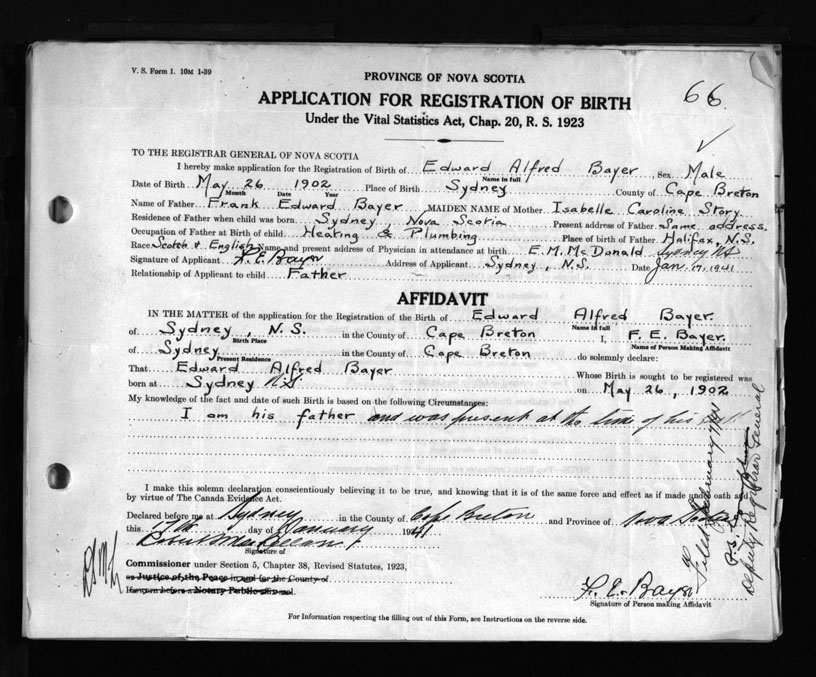 V. S. Form 1. 10M 1-39
PROVINCE OF NOVA SCOTIA
66
APPLICATION FOR REGISTRATION OF BIRTH
Under the Vital Statistics Act, Chap. 20, R. S. 1923
TO THE REGISTRAR GENERAL OF NOVA SCOTIA
I hereby make application for Registration of Birth of Edward Alfred Bayer, Sex Male
Name in full
Date of Birth May 26 1902 Place of Birth Sydney County of Cape Breton
Month Date Year
Name of Father Frank Edward Bayer, MAIDEN NAME of Mother Isabelle Caroline Story.
Residence of Father when child was born Sydney, Nova Scotia Present address of Father Same address.
Occupation of Father at Birth of child Heating & Plumbing Place of birth of Father Halifax, N.S.
Race Scotch & English Name and present address of Physician in attendance at birth E.M. McDonald Sydney NS
Signature of Applicant F.E. Bayer Address of Applicant Sydney, N.S. Date Jan. 17, 1941
Relationship of Applicant to child Father
AFFIDAVIT
IN THE MATTER of the application for the Registration of the Birth of Edward Alfred Bayer.
Name in full
of Sydney, N.S. in the County of Cape Breton I, F. E. Bayer.
Birth Place Name of Person Making Affidavit
of Sydney in the County of Cape Breton do solemnly declare:
Present Residence
That Edward Alfred Bayer Whose Birth is sought to be registered was
born at Sydney N.S. on May 26, 1902
My knowledge of the fact and date of such Birth is based on the following Circumstances:
I am his father and was present at the time of his
I make this solemn declaration conscientiously believing it to be true, and knowing that it is of the same force and effect as if made under oath and
by virtue of The Canada Evidence Act.
Declared before me at Sydney in the County of Cape Breton and Province of Nova Scotia
this 17th day of January 1941
Signature of
Commissioner under Section 5, Chapter 38, Revised Statutes, 1923,
as Justice of the Peace in and for the County of
F. E. Bayer
Signature of Person making Affidavit
For Information respecting the filling out of this Form, see Instructions on the reverse side.
Filed February
Deputy Registrar General